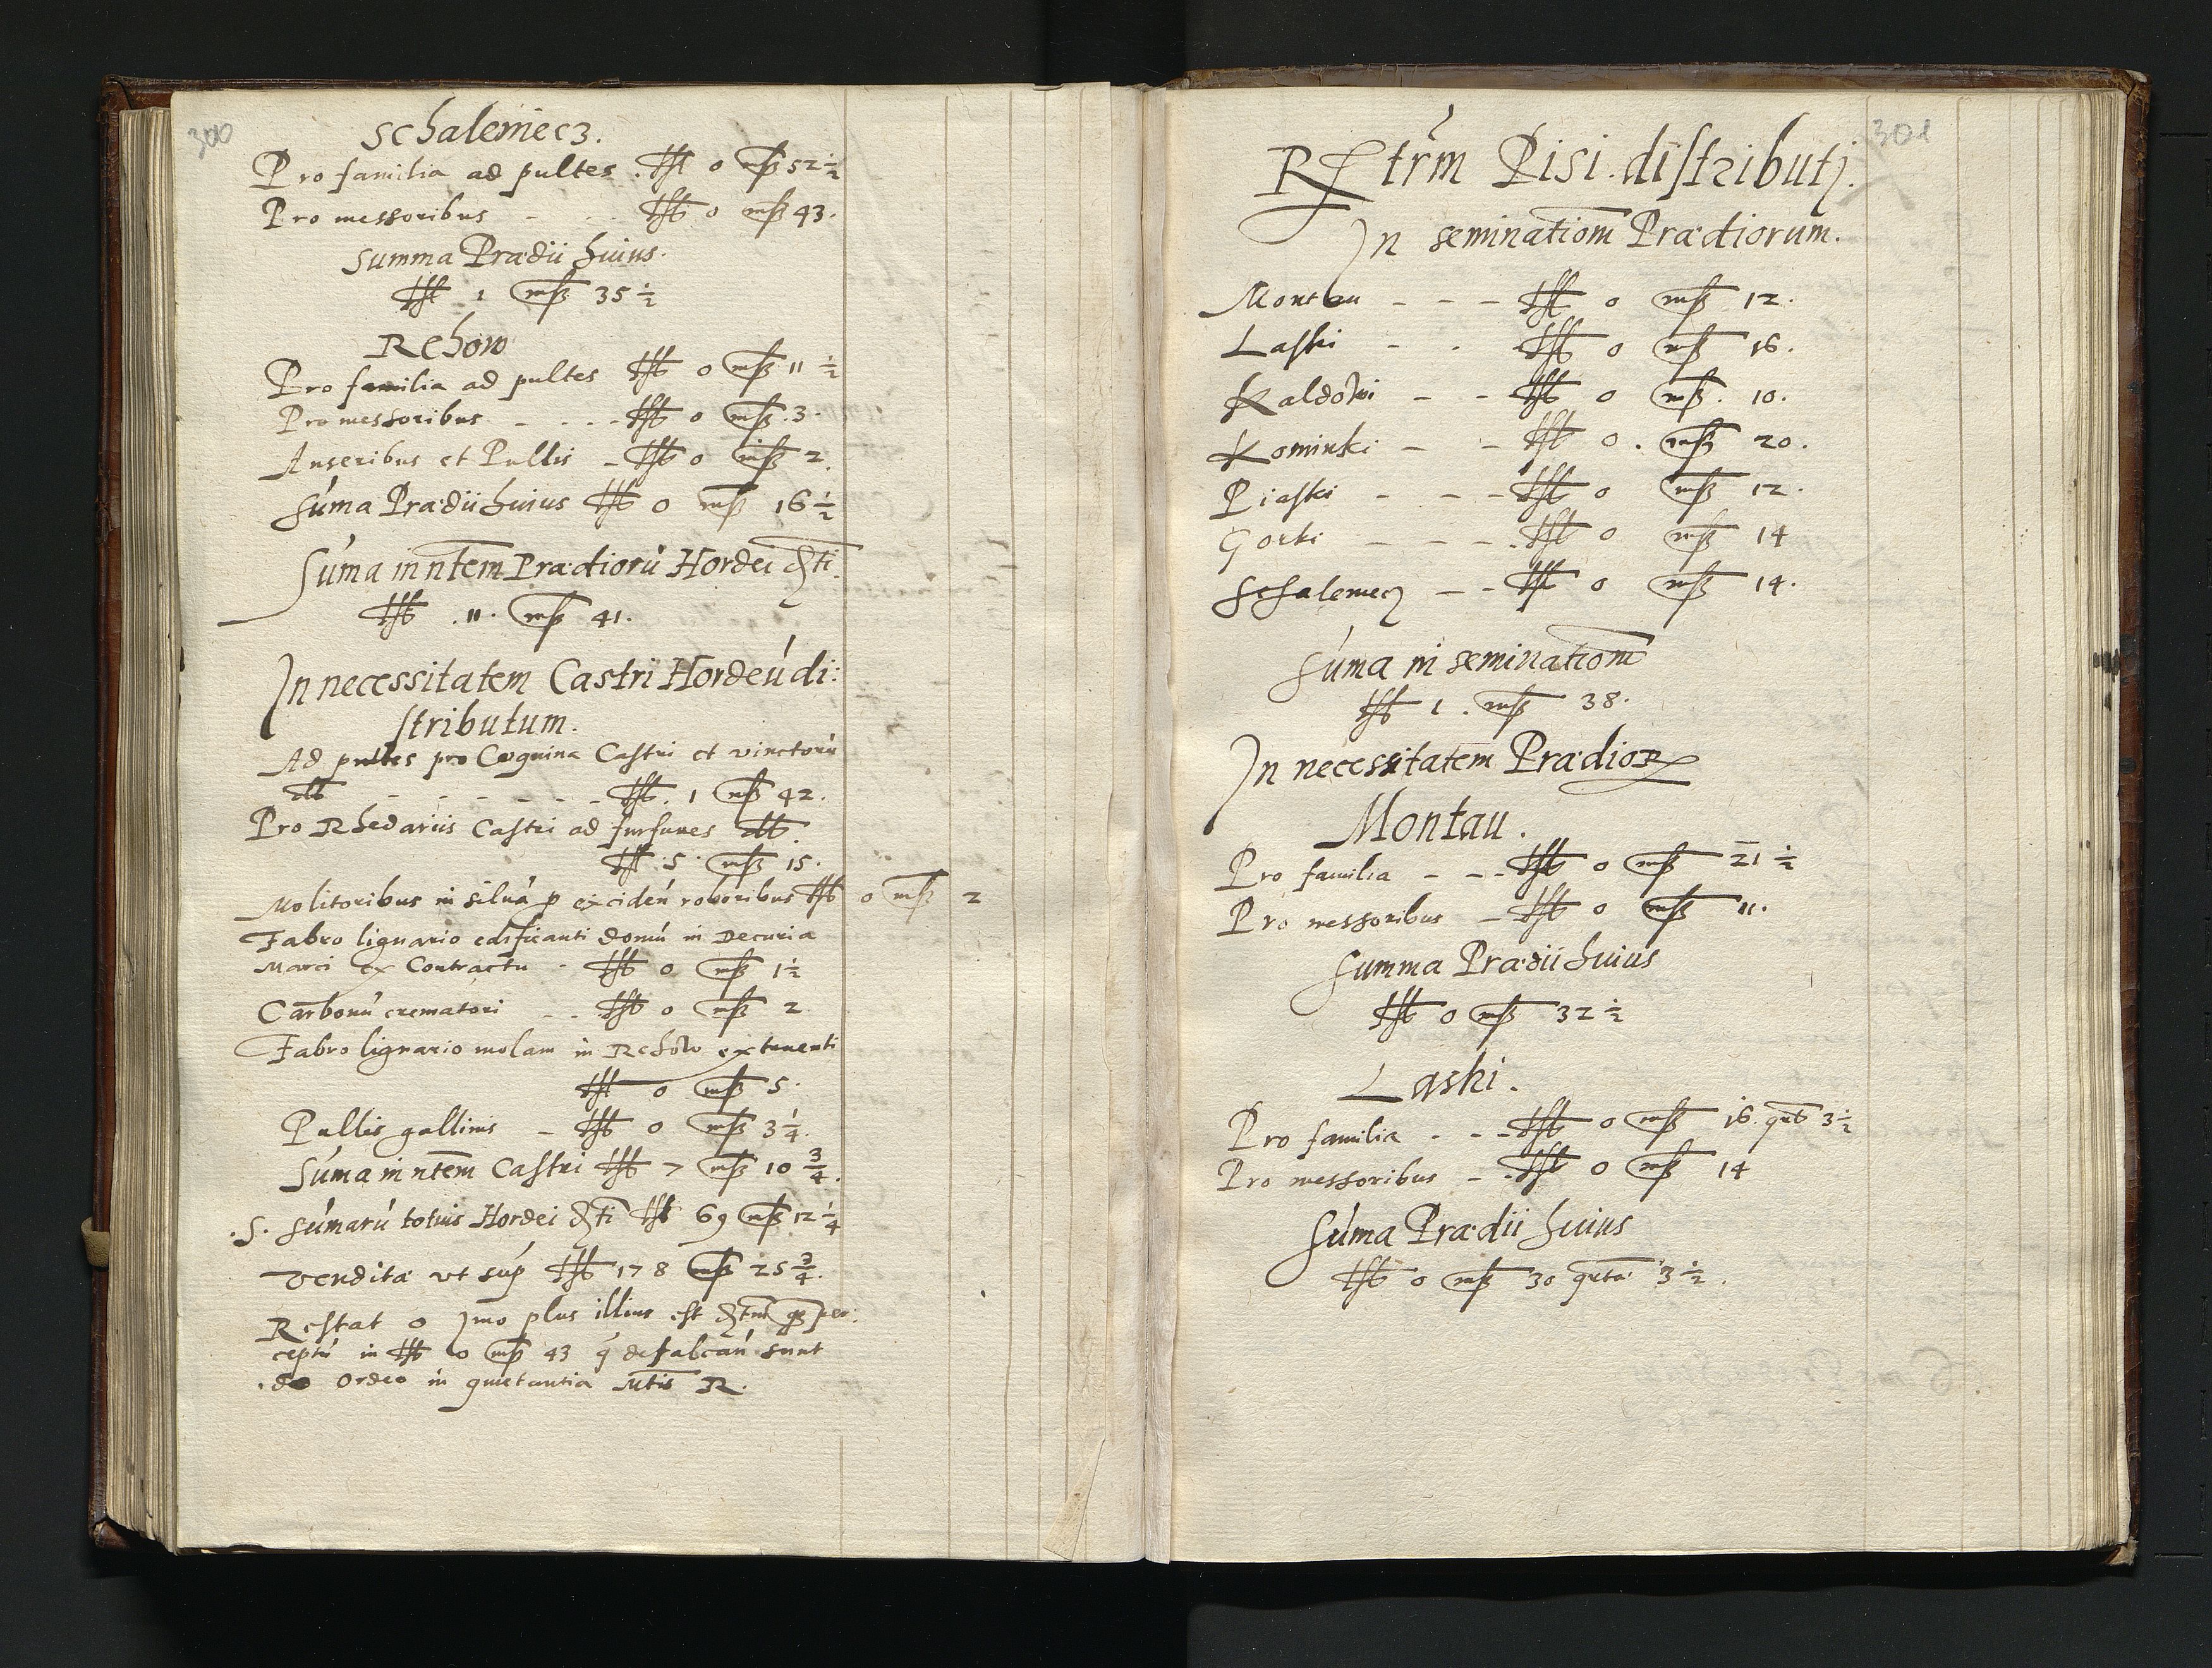 300
Schalemecz.
Pro familia ad pultes . Lst 0 mẞ 52 ½
Pro messoribus - - - Lst 0 mẞ 43.
Summa Prædii huius.
Lst 1 mẞ 35 ½
Rehow
Pro familia ad pultes Lst 0 mẞ 11 ½
Pro messoribus - - - Lst 0 mẞ 3.
Anseribus et Pullis - Lst 0 mẞ 2.
Suma Prædii huius Lst 0 mẞ 16 ½
Suma in ntem Prædiorū Hordei dti.
Lst . 11. mẞ 41.
In necessitatem Castri Hordeū di:
stributum.
Ad pultes pro Coquina Castri et vinctorū
dt - - - - - - Lst. 1 mẞ 42.
Pro Rhedariis Castri ad furfures dt.
Lst . 5 . mẞ 15.
Molitoribus in silua p exciden roboribus Lst 0 mẞ 2
Fabro lignario edificanti domū in Decuria
Marci ex Contractu - Lst 0 mẞ 1 ½
Carbonū crematori - - Lst 0 mẞ 2
Fabro lignario molam in Rehow extruenti
Lst 0 mẞ 5.
Pullis gallinis - Lst 0 mẞ 3 ¼.
Suma in ntem Castri Lst 7 mẞ 10 ¾.
.S. sumarū totius Hordei dti Lst 69 mẞ 12 ¼
Vendita vt sup Lst 178 mẞ 25 ¾.
Restat 0 Imo plus illius est dtut per:
ceptū in Lst 0 mẞ 43 q defalcan sunt
de Ordeo in quietantia Mtis R.
301
Rtrm Pisi distributj.
In seminatiom Prædiorum.
Montau - - - Lst 0 mẞ 12.
Laski - . Lst 0 mẞ 16.
Kaldowi - - Lst 0 mẞ. 10.
Kominki - - Lst 0 . mẞ 20.
Piaski - - - Lst 0 mẞ 12.
Gorki - - - . Lst 0 mẞ 14
Schalemecz - - Lst 0 mẞ 14.
Suma in seminatiom
Lst 1 . mẞ 38.
In necessitatem Prædior
Montau.
Pro familia - - - Lst 0 mẞ 21 ½
Pro messoribus - Lst 0 mẞ 11.
Summa Prædii huius
Lst 0 mẞ 32 ½
Laski.
Pro familia . - - Lst 0 mẞ 16 qrt 3 ½
Pro messoribus - . Lst 0 mẞ 14
Suma Prædii huius
Lst 0 mẞ 30 qrta 3 ½.